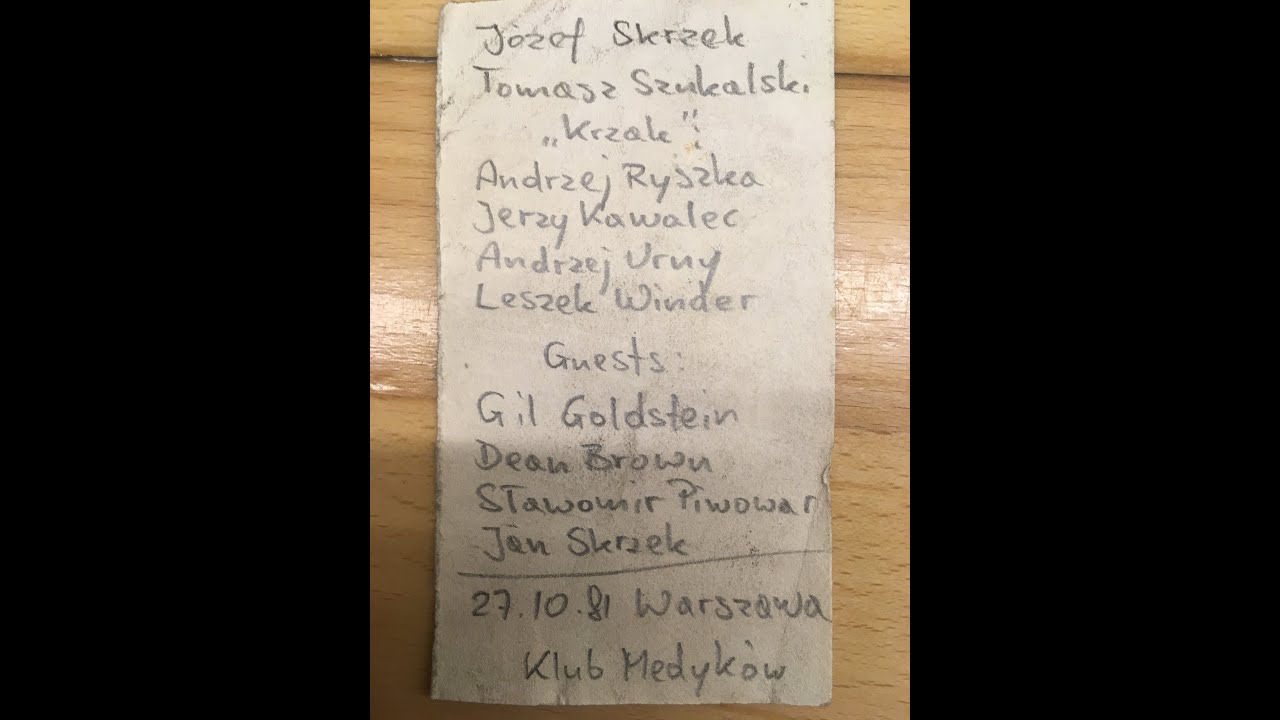 Józef Skrzek
Tomasz Szukalski
„Krzak":
Andrzej Ryszka
Jerzy Kawalec
Andrzej Urny
Leszek Winder
Guests:
Gil Goldstein
Dean Brown
Sławomir Piwowar
Jan Skrzek
27.10.81 Warszawa
Klub Medyków